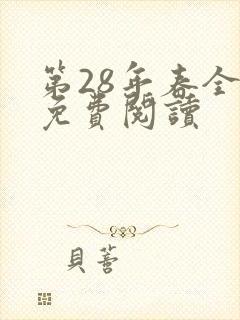 第28年春全
免費閱讀
貝蕾